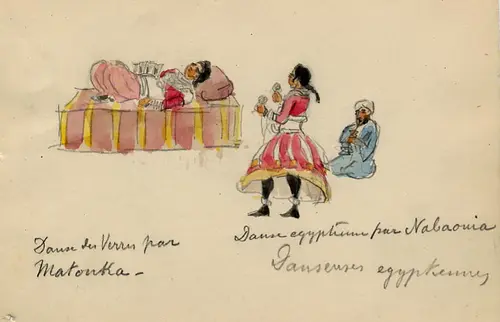 Danse des Verres par
Matouka -
Danse egyptienne par Nabaouia
Danseuses egyptiennes